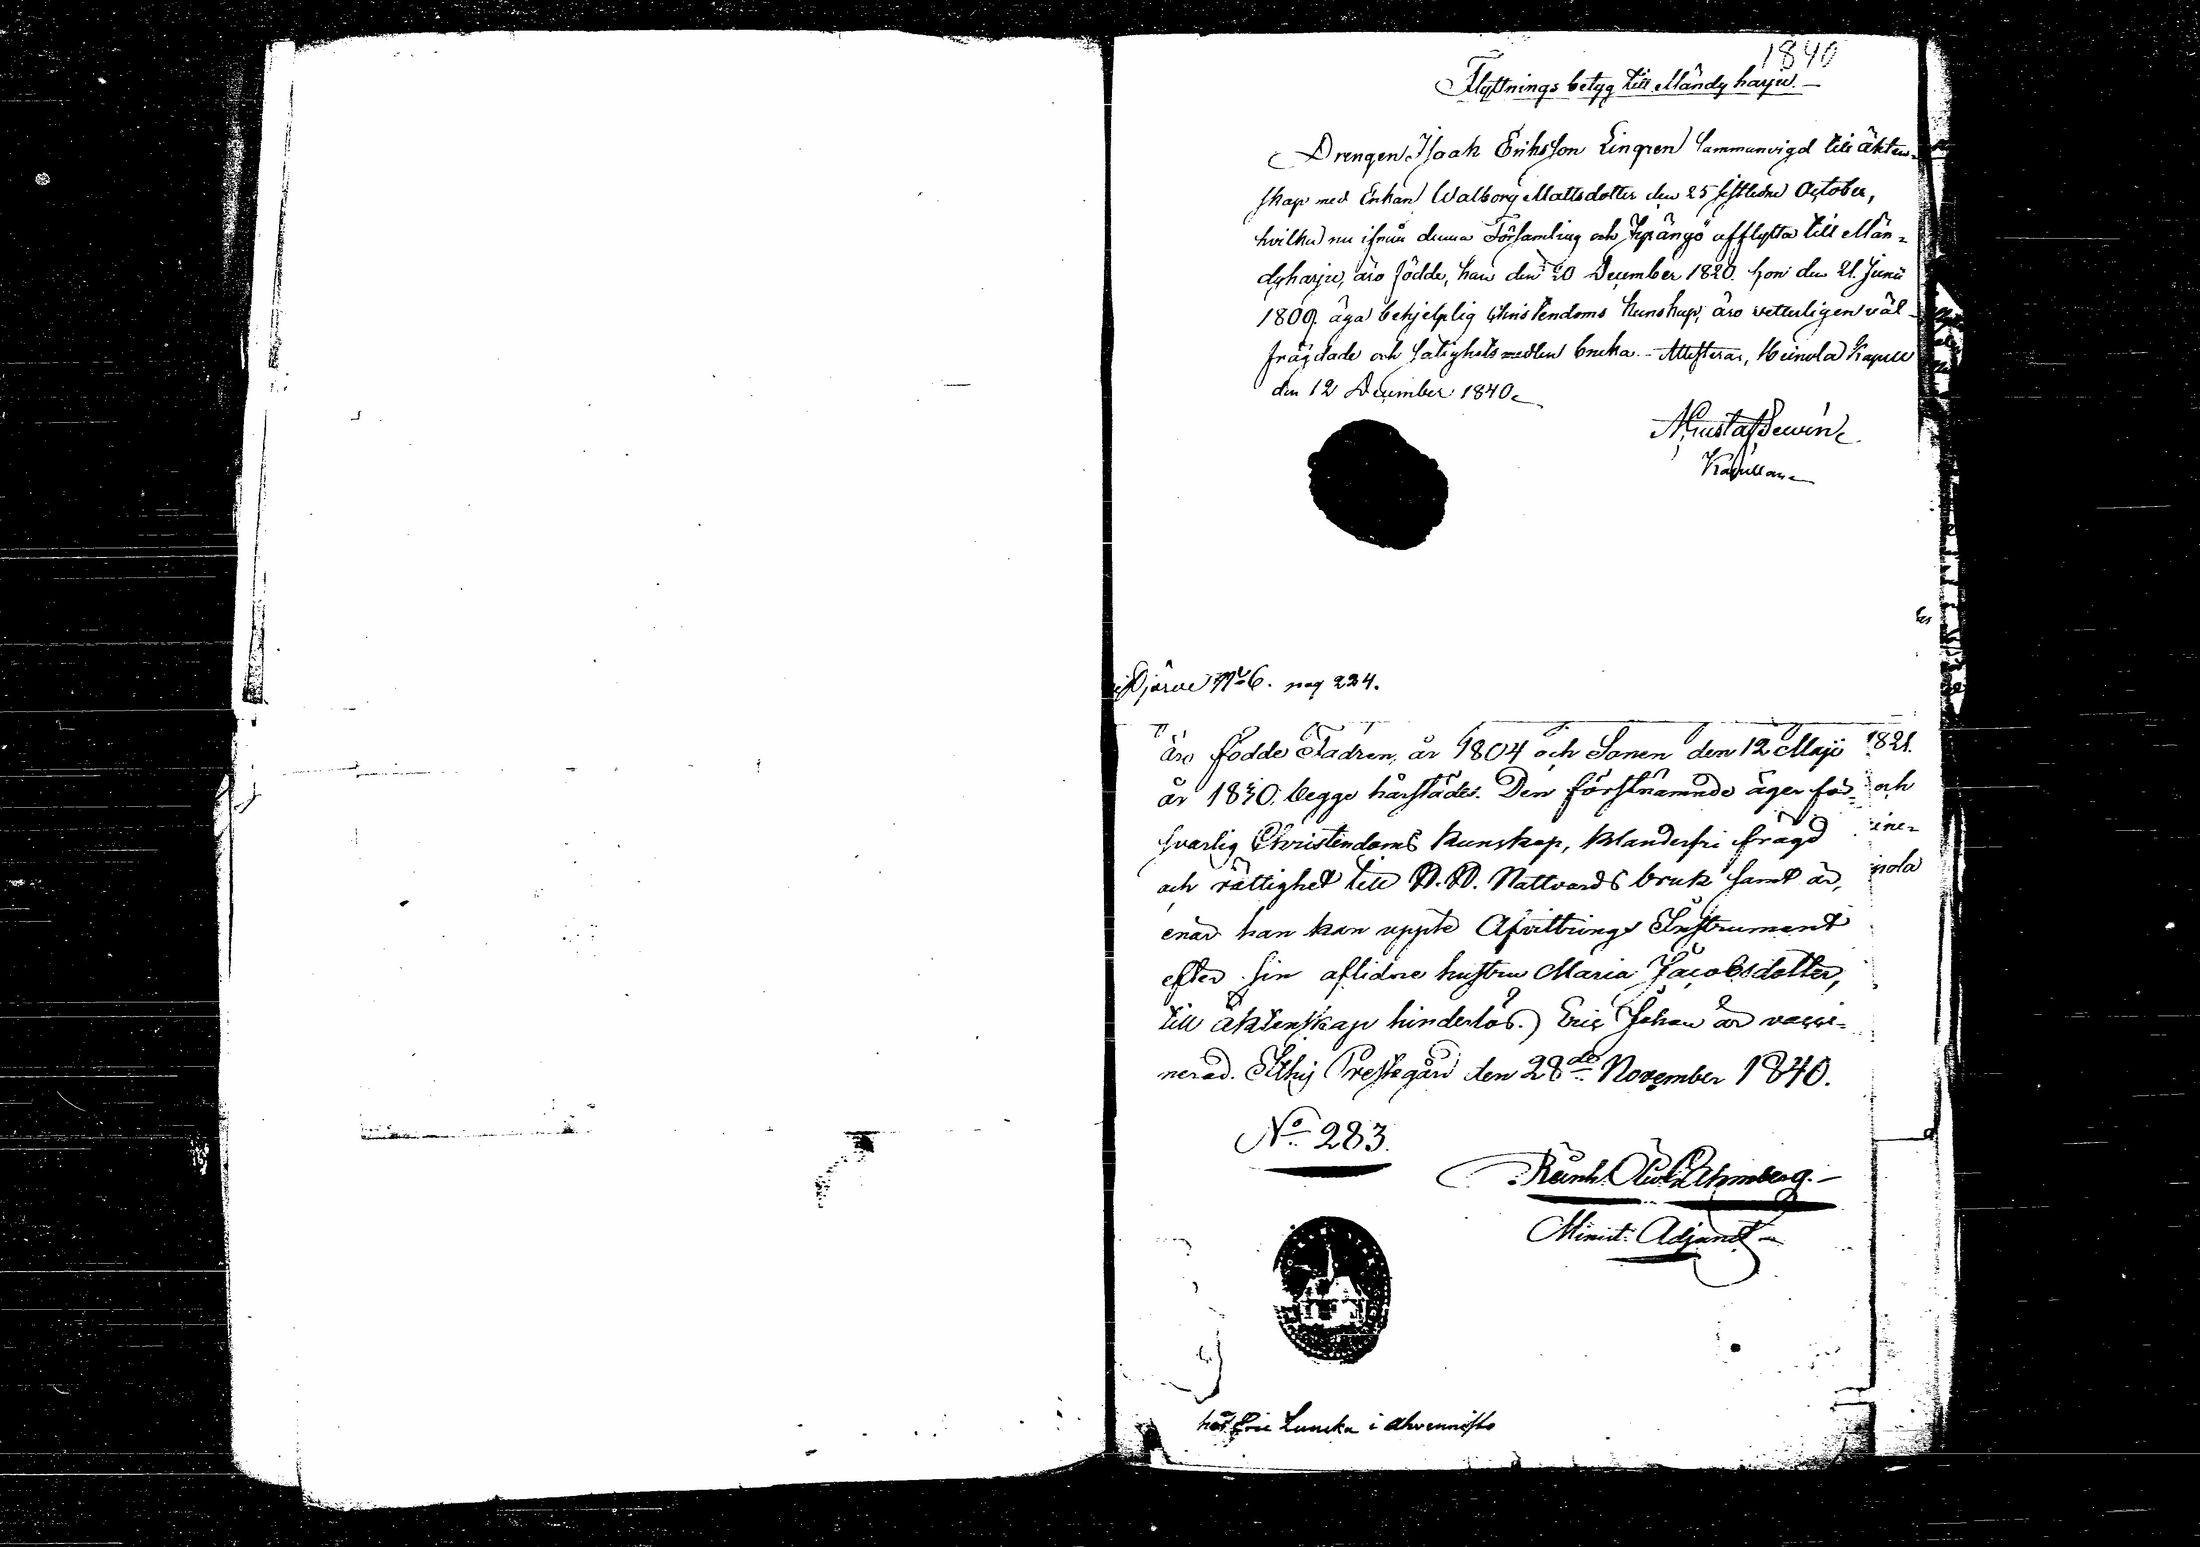 1840
Flyttnings betyg till Mändyharju.
Drengen Isaak Eriksson Lingren sammanvigd till äkten-
skap med Enkan Walborg Mattsdotter den 25 sistledne October,
hvilka nu ifrån denna Församling och afflytta till Män-
dyharju, äro födde, han den 20 December 1820. hon den 21. Junii
1809. äga behjelplig Christendoms Kunskap, äro vetterligen väl
frägdade och salighetsmedlen bruka. Attesteras, Heinola Kapell
den 12 December 1840
Kapellan
No 6. pag 224.
äro födde Fadren, år 1804 och Sonen den 12 Maji
år 1830. begge härstädes. Den förstnämnde äger för-
svarlig Christendoms Kunskap, klanderfri frägd
och rättighet till H. H. Nattvards bruk samt är,
enär han kan uppte Afvittrings Instrument
efter sin aflidne hustru Maria Jacobsdotter,
till äktenskap hinderlös. Eric Johan är vacci-
nerad. Itthis Prestegård den 28de November 1840.
1821.
och
ine-
nola
No 283.
Minist. Adjunct
hos Eric Luucka i Ahvennisto